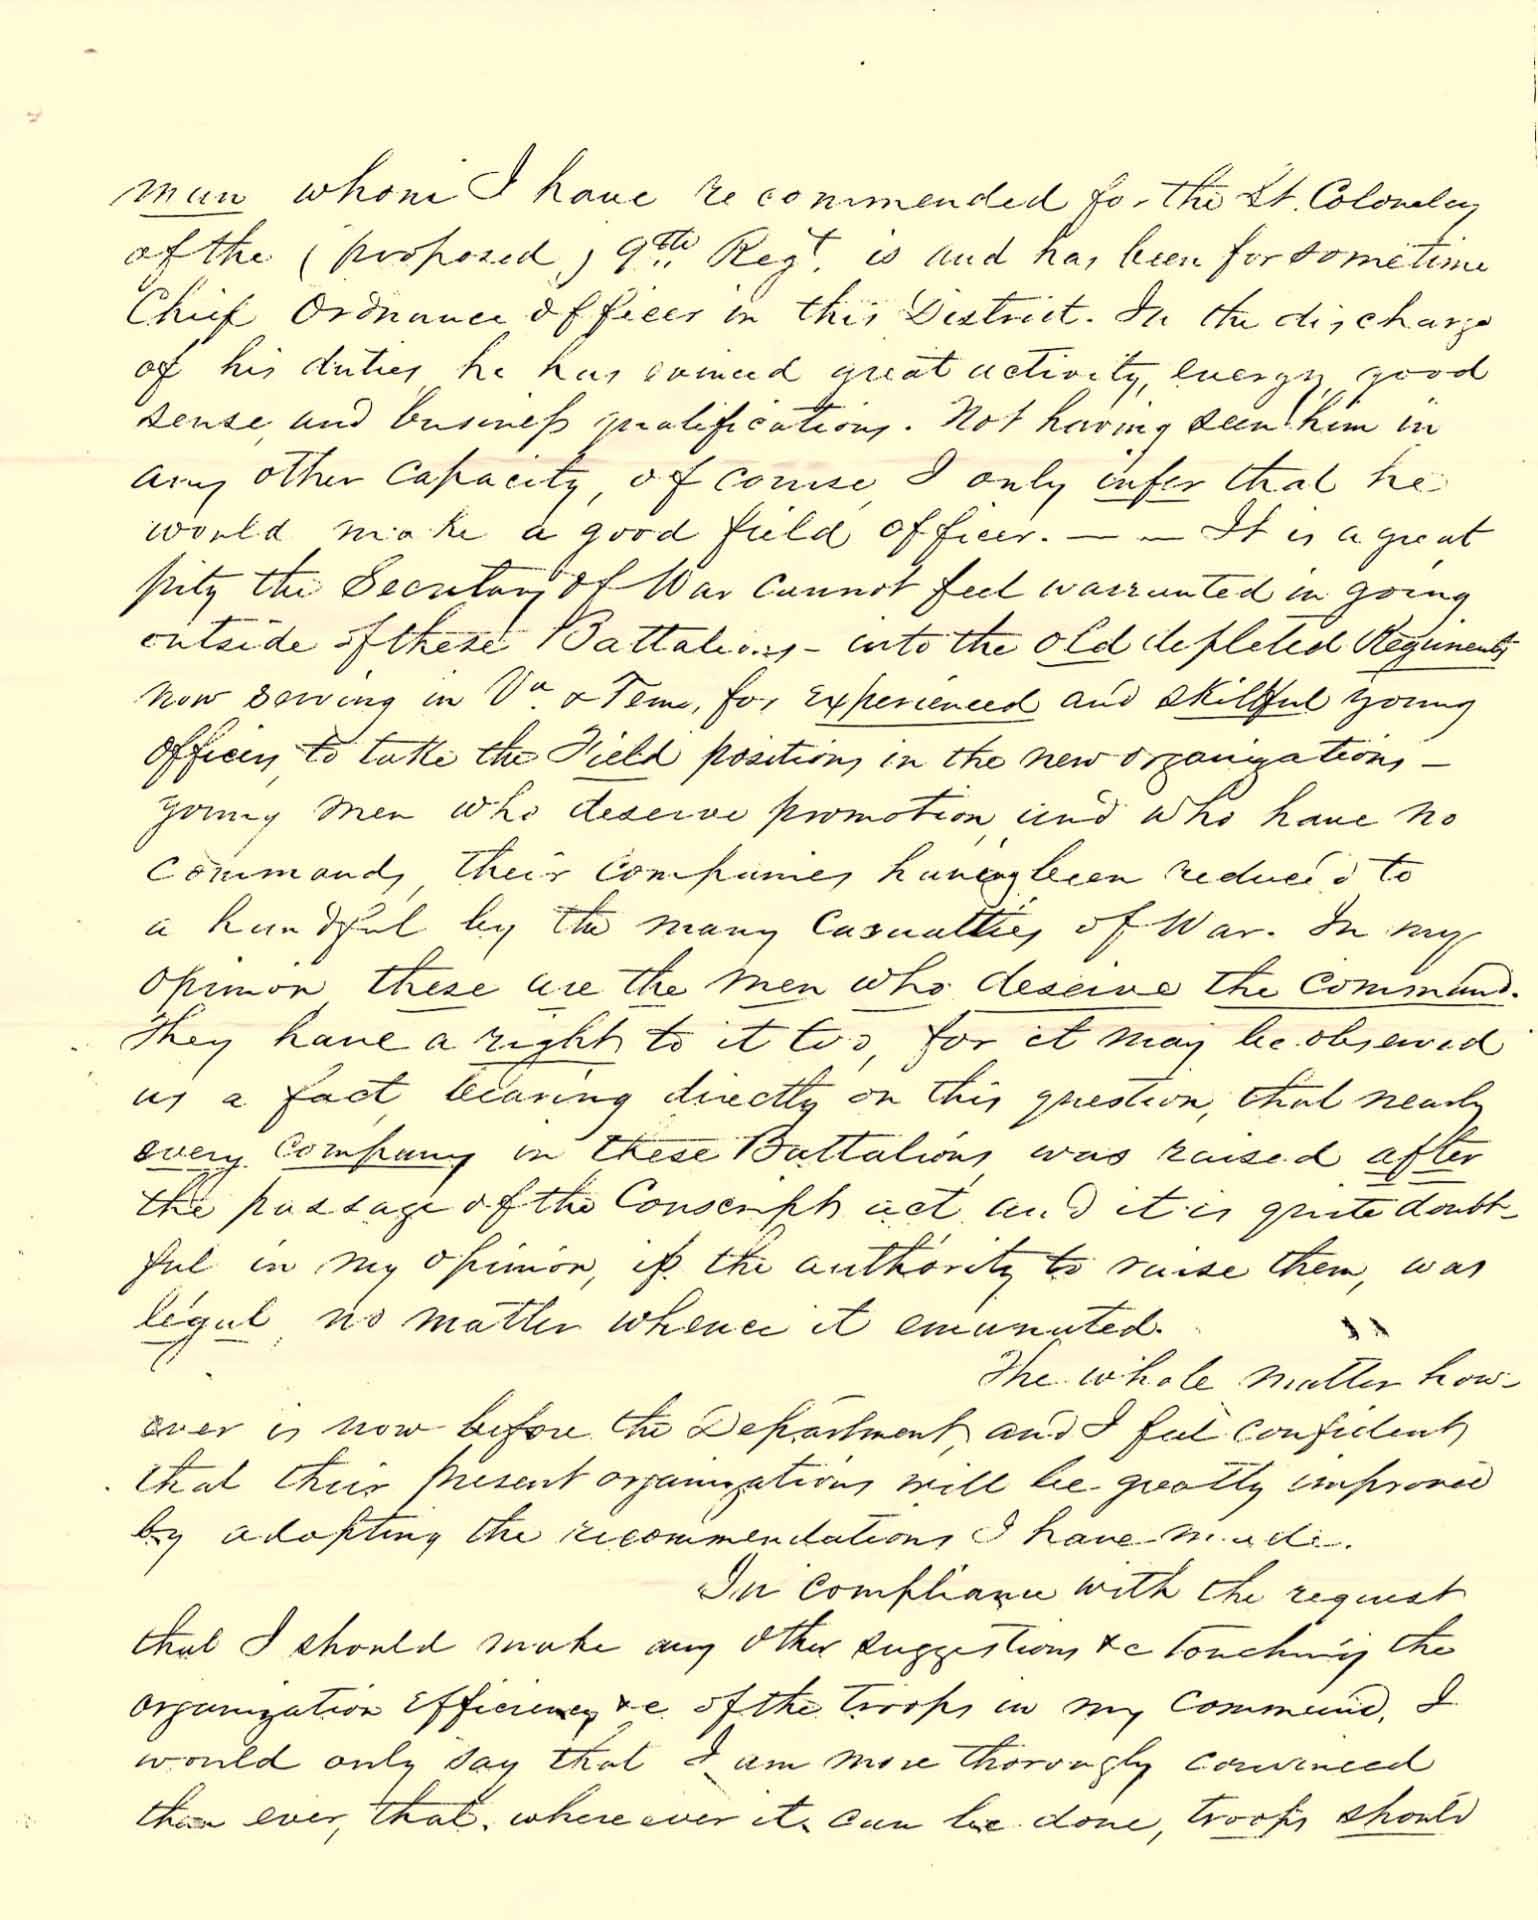 man whom I have recommended for the Lt. Colonelcy
of the (proposed) 9th Regt. is and has been for sometime
Chief Ordnance officer in this District. In the discharge
of his duties, he has evinced great activity, energy, good
sense, and business qualifications. Not having seen him in
any other capacity, of course, I only infer that he
would make a good field officer. — — It is a great
pity the Secretary of War cannot feel warranted in going
outside of these Battalions - into the old depleted Regiments
now serving in Va. & Tenn, for experienced and skillful young
officers, to take the Field positions in the new organizations -
young men who deserve promotion, and who have no
commands, their companies having been reduced to
a handful by the many casualties of War. In my
opinion, these are the men who deserve the command.
They have a right to it too, for it may be observed
as a fact, bearing directly on this question, that nearly
every company in these Battalions, was raised after
the passage of the Conscript act, and it is quite doubt-
ful in my opinion, if the authority to raise them, was
legal, no matter whence it emanated.
The whole matter how-
ever is now before the Department, and I feel confident
that their present organizations will be greatly improved
by adopting the recommendations I have made.
In compliance with the request
that I should make any other suggestions &c touching the
organization efficiency &c. of the troops in my command, I
would only say that I am more thorougly convinced
than ever, that, where ever it can be done, troops should